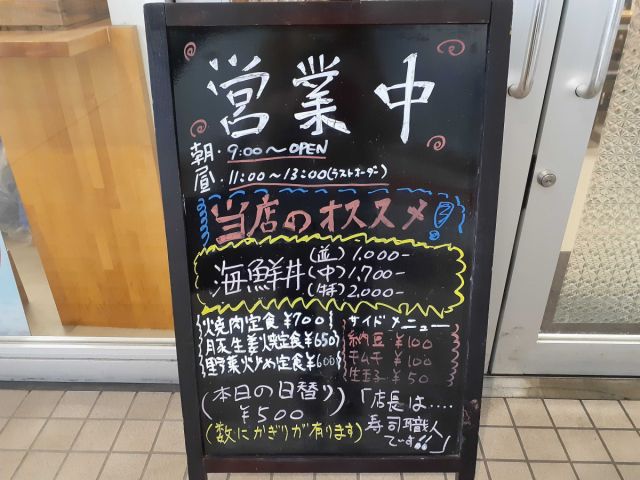 営業中
朝・9:00〜OPEN
昼・11:00〜13:00(ラストオーダー)
当店のオススメ
海鮮丼
(並) 1,000-
(中) 1,700-
(特) 2,000-
焼肉定食¥700
豚生姜焼定食¥650
野菜炒め定食¥600
サイドメニュー
納豆 ¥100
キムチ ¥100
生玉子 ¥50
(本日の日替り ¥500)
(数にかぎりが有ります)
「店長は....
寿司職人
です!!」